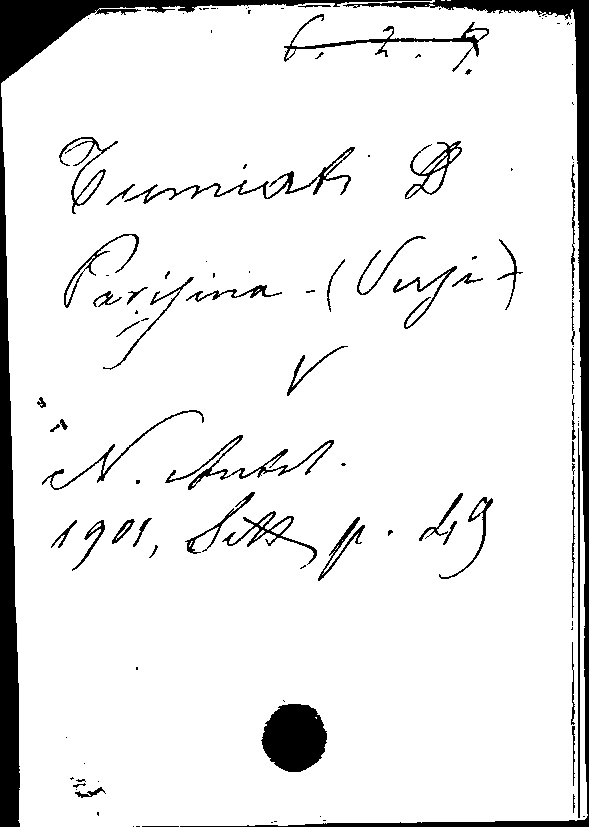 6. 2. 7.
Tumiati D
Parisina - (Versi)
V
N. Antol.
1901, Sett p. 49